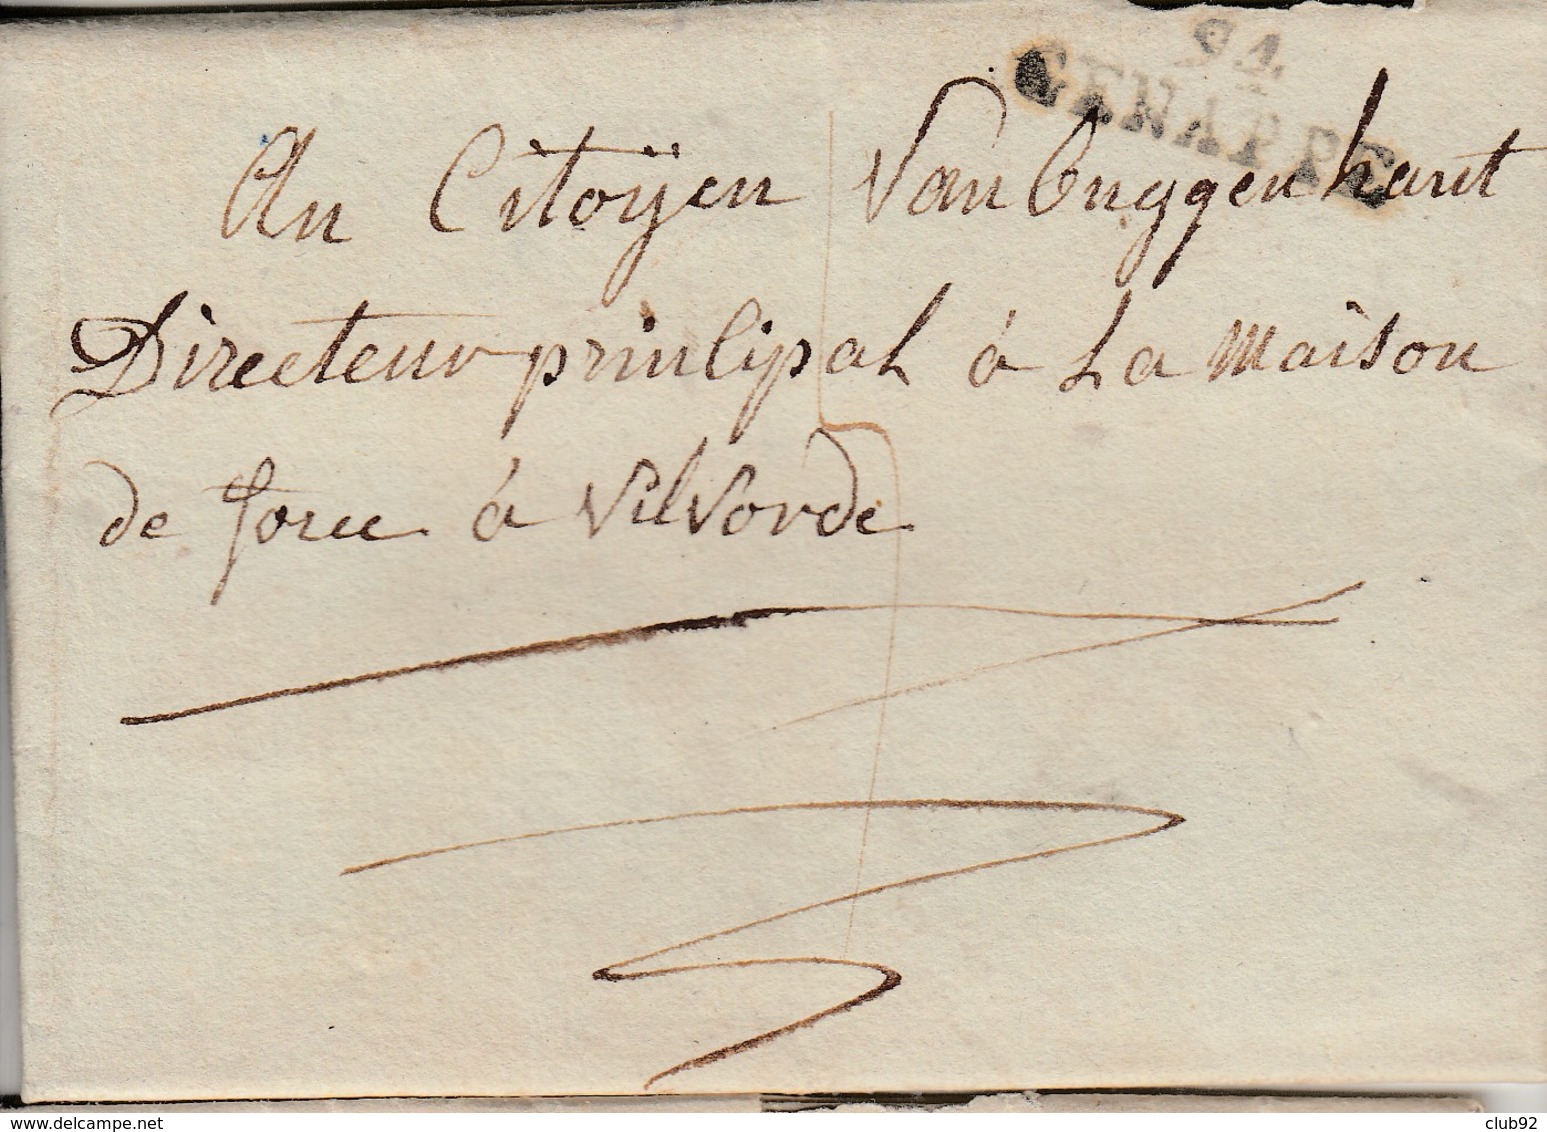 94
GENAPPE
Au Citoÿen Vanbuggenhaut
Directeur principal à La maison
de force à vilvorde
delcampe.net
club92